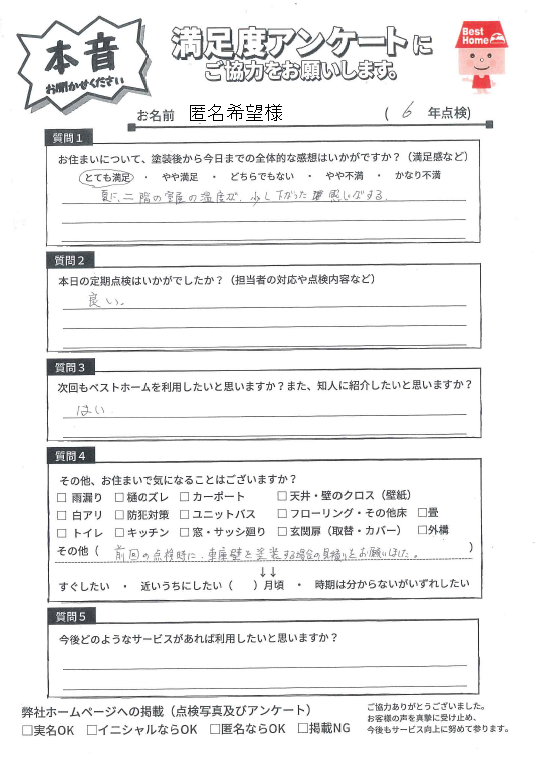 本音
お聞かせください
満足度アンケートに
ご協力をお願いします。
Best Home
お名前 匿名希望様 ( 6 年点検)
質問1
お住まいについて、塗装後から今日までの全体的な感想はいかがですか？（満足感など）
とても満足 ・ やや満足 ・ どちらでもない ・ やや不満 ・ かなり不満
夏に、二階の室の温度が、少し下がった 感じがする。
質問2
本日の定期点検はいかがでしたか？（担当者の対応や点検内容など）
良い。
質問3
次回もベストホームを利用したいと思いますか？また、知人に紹介したいと思いますか？
はい
質問4
その他、お住まいで気になることはございますか？
□ 雨漏り □ 樋のズレ □ カーポート □ 天井・壁のクロス（壁紙）
□ 白アリ □ 防犯対策 □ ユニットバス □ フローリング・その他床 □畳
□ トイレ □ キッチン □ 窓・サッシ廻り □ 玄関扉（取替・カバー） □外構
その他（ 前回の点検時に、車庫壁を塗装する場合の見積りをお願いしました。 ）
↓↓
すぐしたい ・ 近いうちにしたい（ ）月頃 ・ 時期は分からないがいずれしたい
質問5
今後どのようなサービスがあれば利用したいと思いますか？
弊社ホームページへの掲載（点検写真及びアンケート）
□実名OK □イニシャルならOK □匿名ならOK □掲載NG
ご協力ありがとうございました。
お客様の声を真摯に受け止め、
今後もサービス向上に努めて参ります。